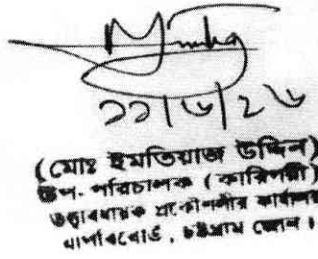 ২১/৬/২৬
(মোঃ ইমতিয়াজ উদ্দিন)
উপ-পরিচালক (কারিগরী)
তত্ত্বাবধায়ক প্রকৌশলীর কার্যালয়
বাপবিবোর্ড, চট্টগ্রাম জোন।